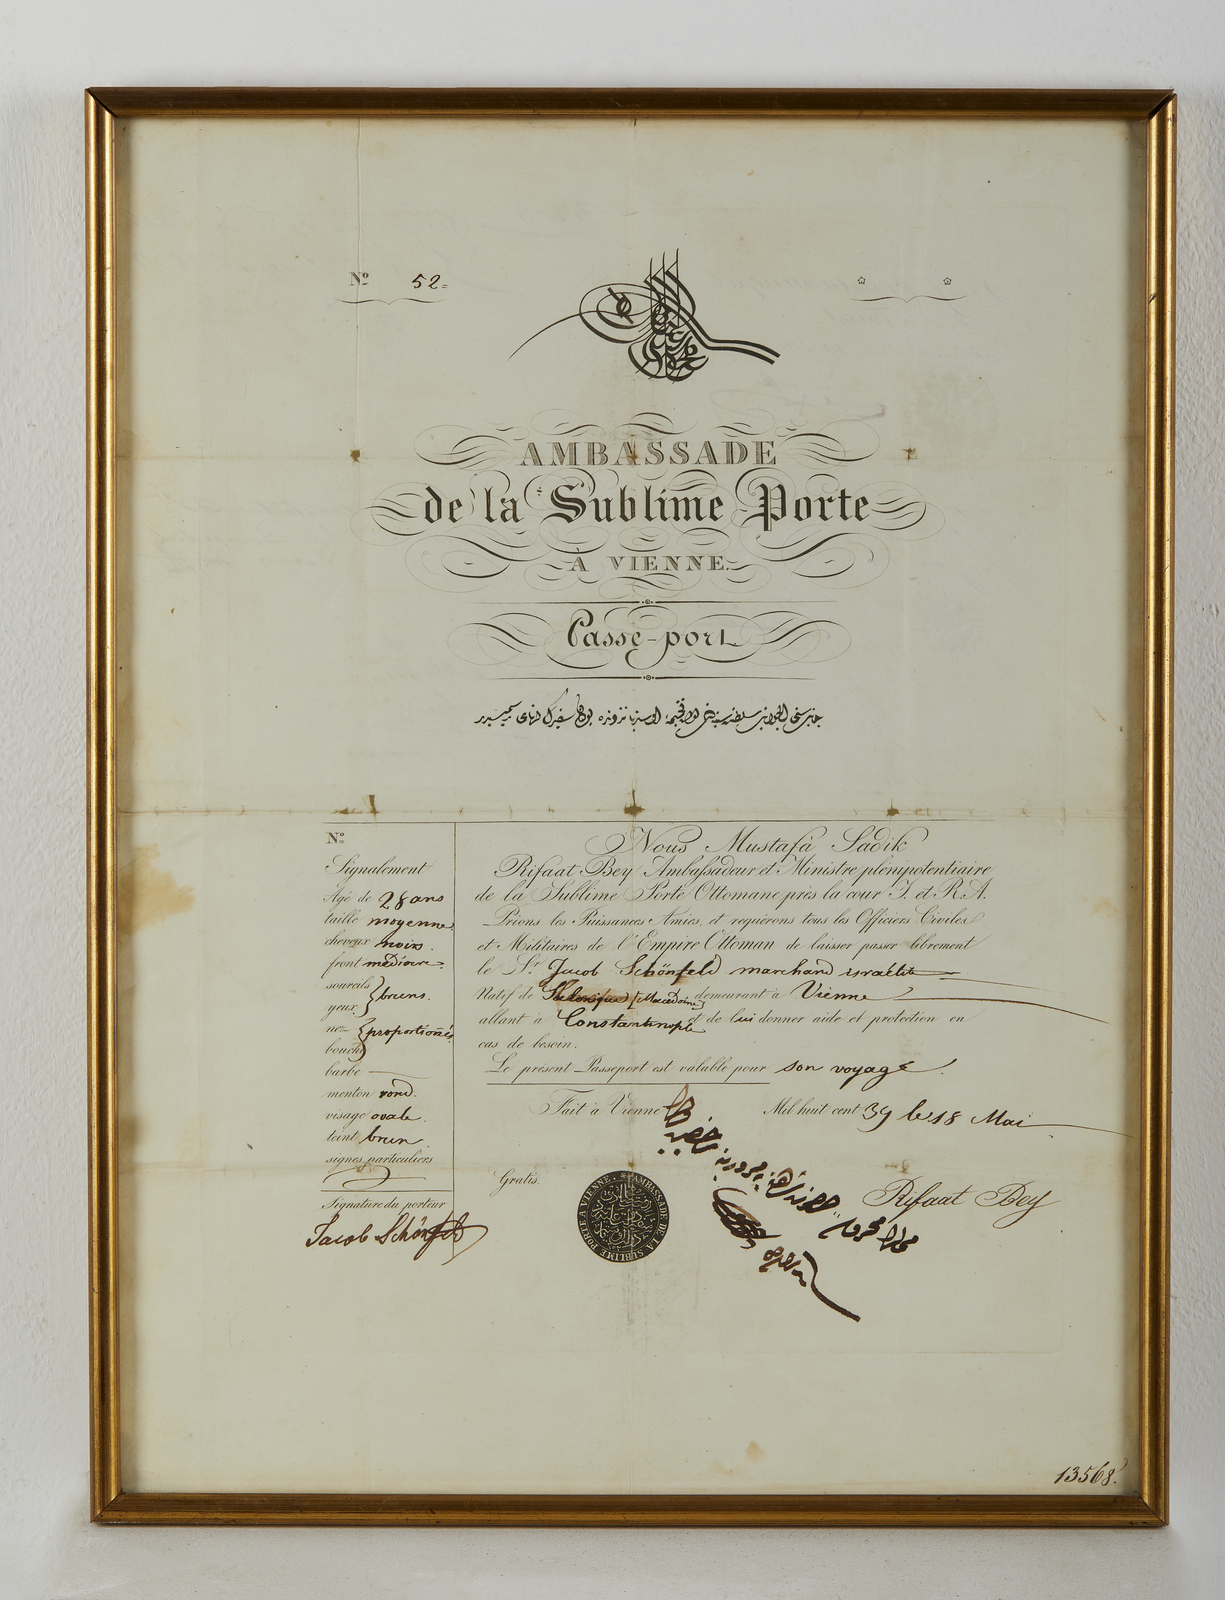 Nº 52=
AMBASSADE
de la Sublime Porte
À VIENNE.
Passe-port
Nº
Signalement
Agé de 28 ans
taille moyenne
cheveux noirs.
front mediocre
sourcils
yeux } bruns.
nez } proportionés
bouche
barbe
menton rond.
visage ovale.
teint brun.
signes particuliers
Signature du porteur
Jacob Schönfeld
Nous Mustafà Sadik
Rifaat Bey Ambassadeur et Ministre plénipotentiaire
de la Sublime Porte Ottomane près la cour I. et R. A.
Prions les Puissances Amies, et requérons tous les Officiers Civiles
et Militaires de l'Empire Ottoman de laisser passer librement
le Sr. Jacob Schönfeld marchand israélite
Natif de (Macedoine) demeurant à Vienne
allant à Constantinople et de lui donner aide et protection en
cas de besoin.
Le présent Passeport est valable pour son voyage.
Fait à Vienne Mil huit cent 39 le 18 Mai
Gratis.
AMBASSADE DE LA SUBLIME PORTE A VIENNE
Rifaat Bey
13568.